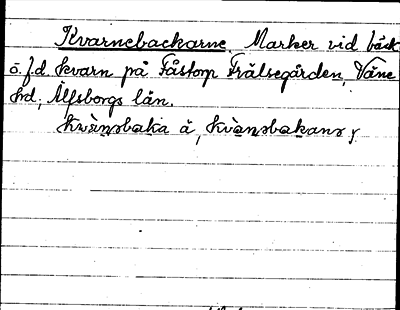 Kvarnebackarne. Marker vid bäck
o. f.d. kvarn på Fåstorp Frälsegården, Väne
hd, Älfsborgs län.
kvànsbaka å, kvànsbakans